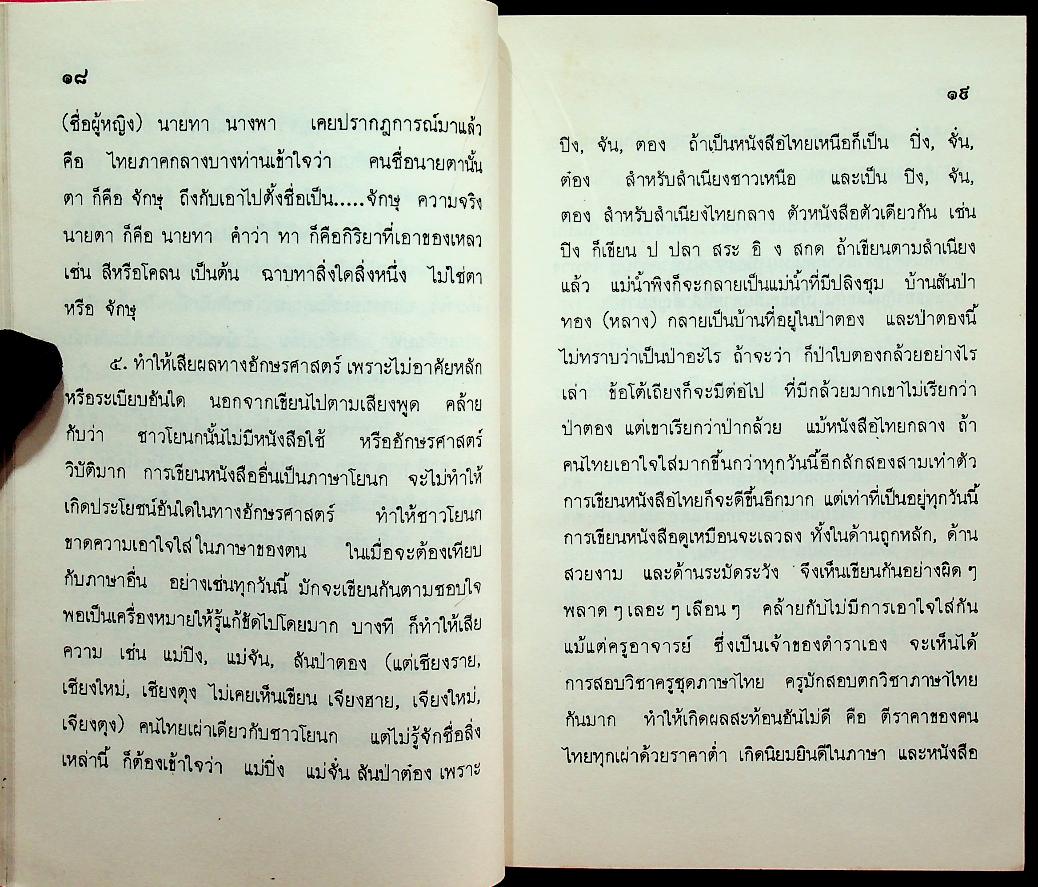 ๑๘
(ชื่อผู้หญิง) นายทา นางพา เคยปรากฏการณ์มาแล้ว
คือ ไทยภาคกลางบางท่านเข้าใจว่า คนชื่อนายตานั้น
ตา ก็คือ จักษุ ถึงกับเอาไปตั้งชื่อเป็น.....จักษุ ความจริง
นายตา ก็คือ นายทา คำว่า ทา ก็คือกิริยาที่เอาของเหลว
เช่น สีหรือโคลน เป็นต้น ฉาบทาสิ่งใดสิ่งหนึ่ง ไม่ใช่ตา
หรือ จักษุ
๕. ทำให้เสียผลทางอักษรศาสตร์ เพราะไม่อาศัยหลัก
หรือระเบียบอันใด นอกจากเขียนไปตามเสียงพูด คล้าย
กับว่า ชาวโยนกนั้นไม่มีหนังสือใช้ หรืออักษรศาสตร์
วิบัติมาก การเขียนหนังสืออื่นเป็นภาษาโยนก จะไม่ทำให้
เกิดประโยชน์อันใดในทางอักษรศาสตร์ ทำให้ชาวโยนก
ขาดความเอาใจใส่ในภาษาของตน ในเมื่อจะต้องเทียบ
กับภาษาอื่น อย่างเช่นทุกวันนี้ มักจะเขียนกันตามชอบใจ
พอเป็นเครื่องหมายให้รู้แก้ขัดไปโดยมาก บางที ก็ทำให้เสีย
ความ เช่น แม่ปิง, แม่จัน, สันป่าตอง (แต่เชียงราย,
เชียงใหม่, เชียงตุง ไม่เคยเห็นเขียน เจียงฮาย, เจียงใหม่,
เจียงตุง) คนไทยเผ่าเดียวกับชาวโยนก แต่ไม่รู้จักชื่อสิ่ง
เหล่านี้ ก็ต้องเข้าใจว่า แม่ปิ่ง แม่จั่น สันป่าต๋อง เพราะ
๑๙
ปิง, จัน, ตอง ถ้าเป็นหนังสือไทยเหนือก็เป็น ปิ๋ง, จั๋น,
ต๋อง สำหรับสำเนียงชาวเหนือ และเป็น ปิง, จัน,
ตอง สำหรับสำเนียงไทยกลาง ตัวหนังสือตัวเดียวกัน เช่น
ปิง ก็เขียน ป ปลา สระ อิ ง สกด ถ้าเขียนตามสำเนียง
แล้ว แม่น้ำพิงก็จะกลายเป็นแม่น้ำที่มีปลิงชุม บ้านสันป่า
ทอง (หลาง) กลายเป็นบ้านที่อยู่ในป่าตอง และป่าตองนี้
ไม่ทราบว่าเป็นป่าอะไร ถ้าจะว่า ก็ป่าใบตองกล้วยอย่างไร
เล่า ข้อโต้เถียงก็จะมีต่อไป ที่มีกล้วยมากเขาไม่เรียกว่า
ป่าตอง แต่เขาเรียกว่าป่ากล้วย แม้หนังสือไทยกลาง ถ้า
คนไทยเอาใจใส่มากขึ้นกว่าทุกวันนี้อีกสักสองสามเท่าตัว
การเขียนหนังสือไทยก็จะดีขึ้นอีกมาก แต่เท่าที่เป็นอยู่ทุกวันนี้
การเขียนหนังสือดูเหมือนจะเลวลง ทั้งในด้านถูกหลัก, ด้าน
สวยงาม และด้านระมัดระวัง จึงเห็นเขียนกันอย่างผิด ๆ
พลาด ๆ เลอะ ๆ เลือน ๆ คล้ายกับไม่มีการเอาใจใส่กัน
แม้แต่ครูอาจารย์ ซึ่งเป็นเจ้าของตำราเอง จะเห็นได้
การสอบวิชาครูชุดภาษาไทย ครูมักสอบตกวิชาภาษาไทย
กันมาก ทำให้เกิดผลสะท้อนอันไม่ดี คือ ตีราคาของคน
ไทยทุกเผ่าด้วยราคาต่ำ เกิดนิยมยินดีในภาษา และหนังสือ